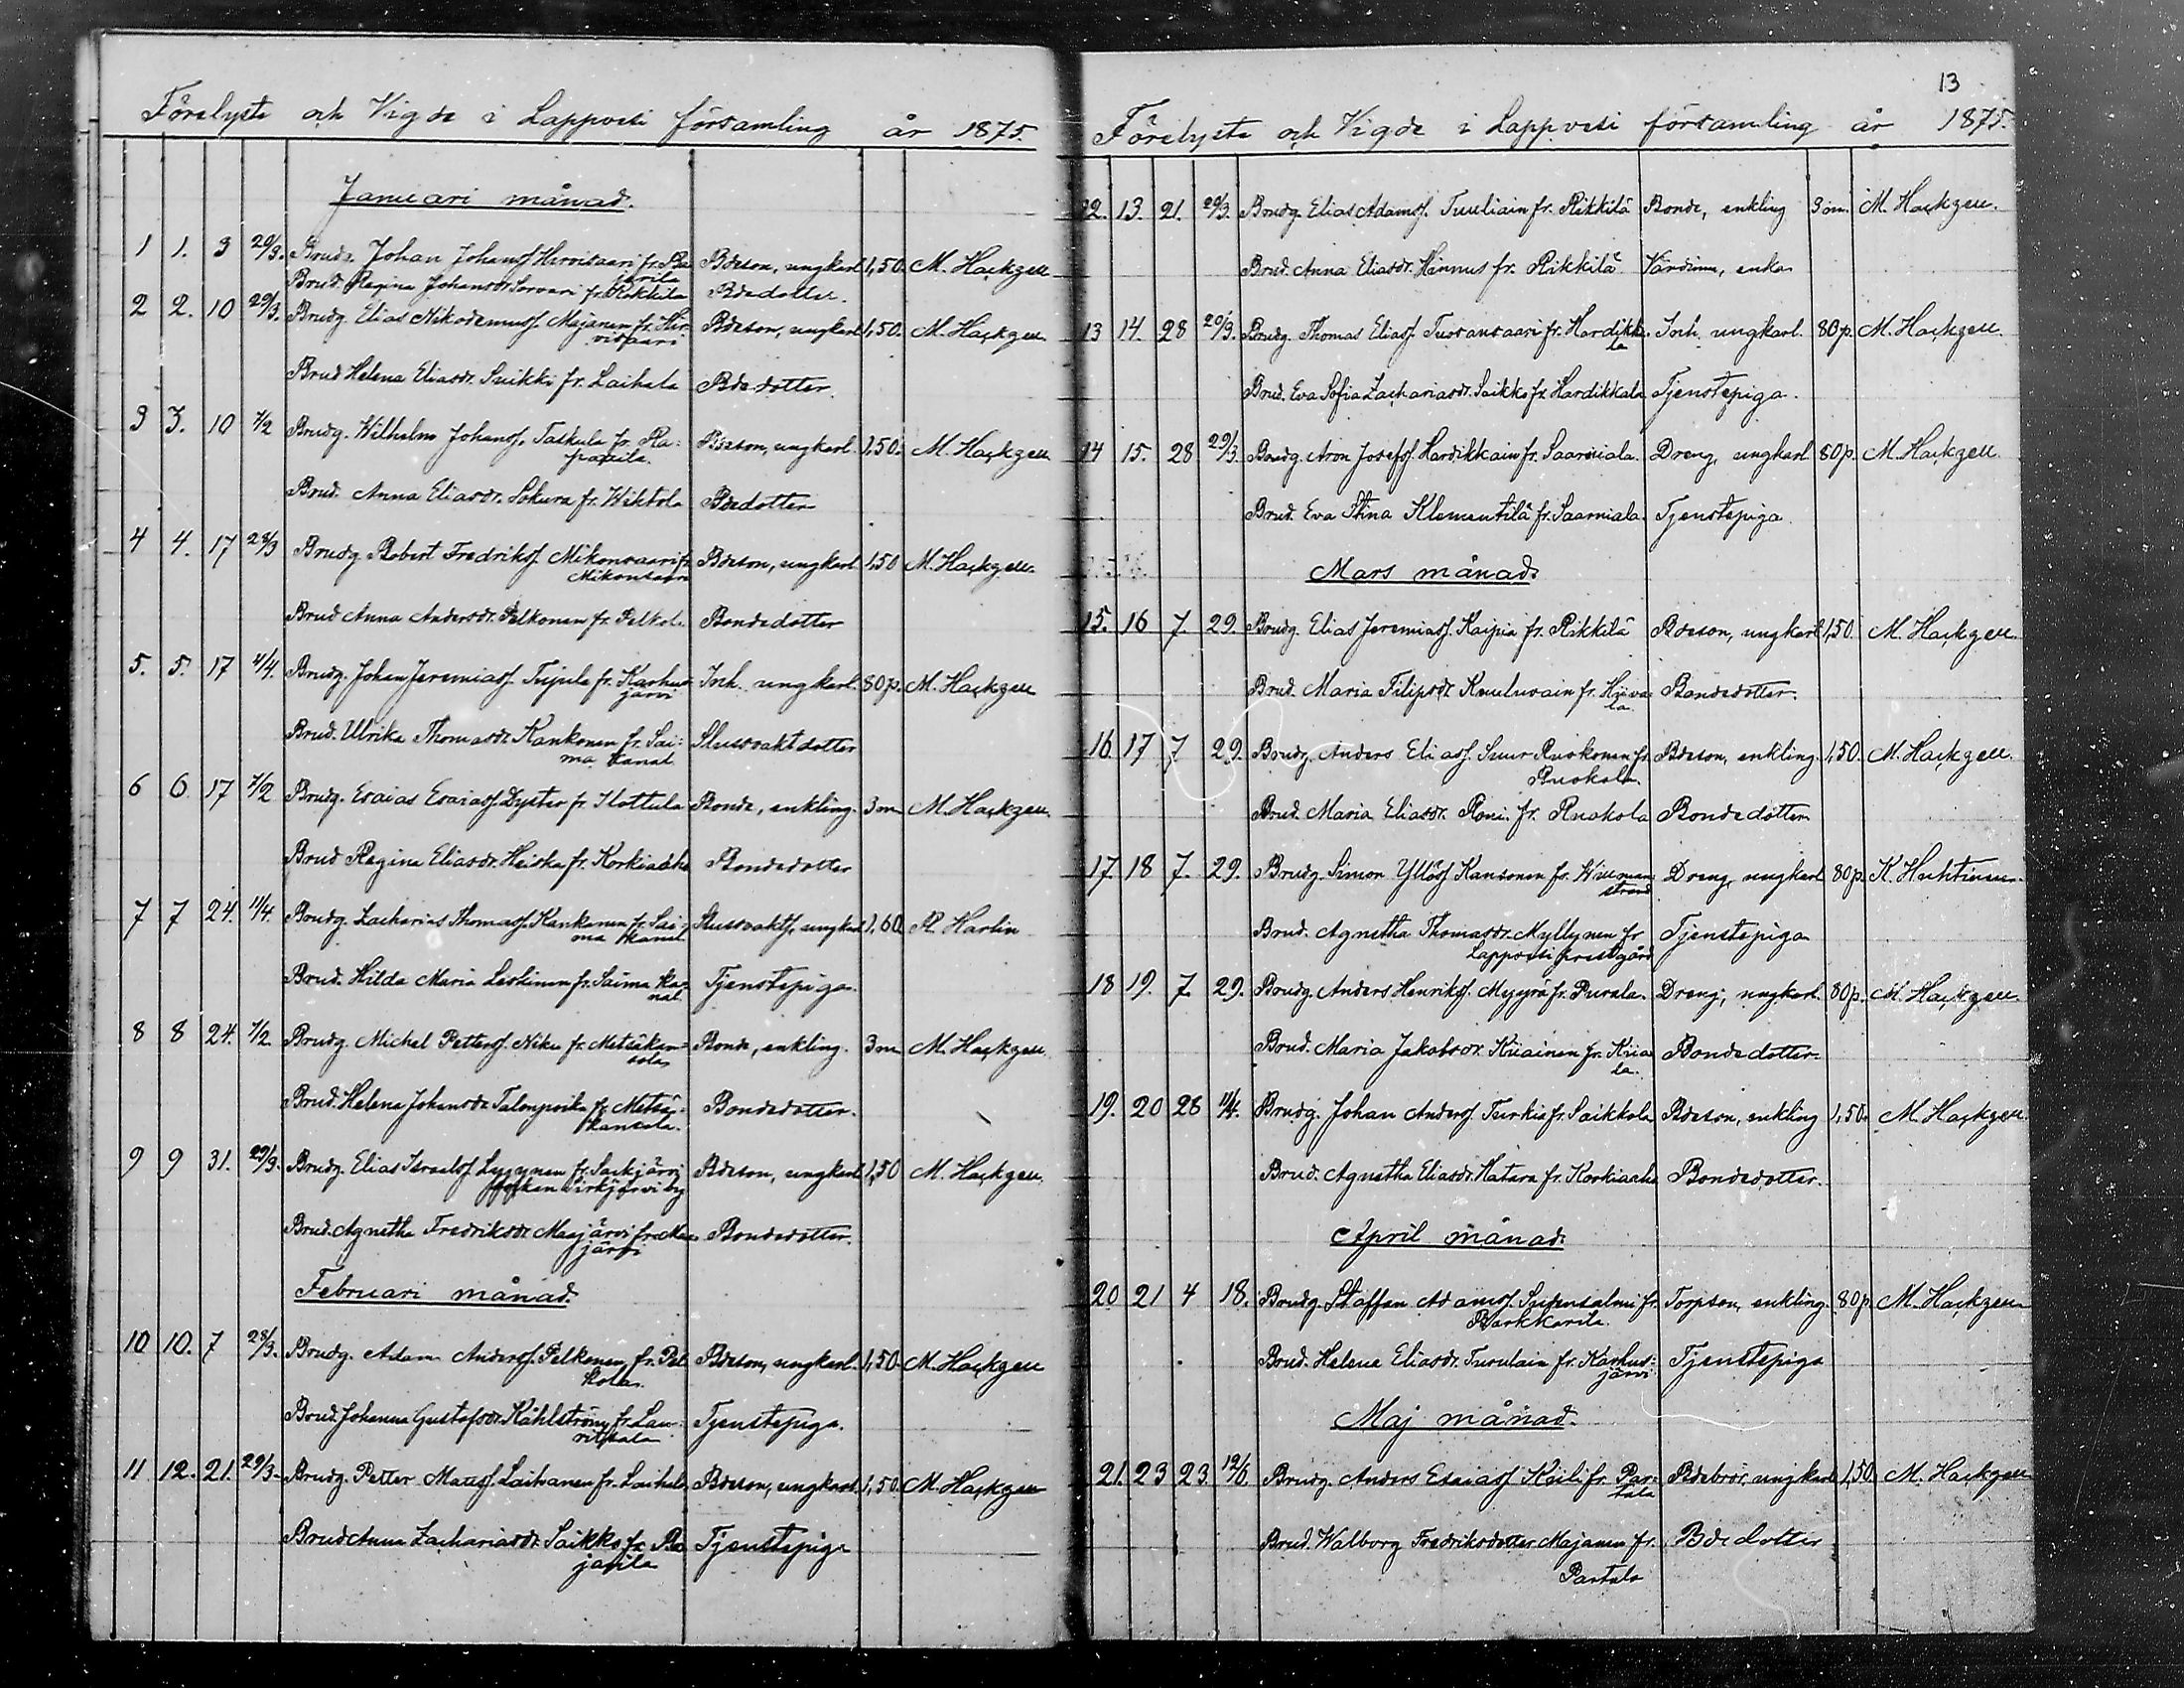 Förelyste och Vigde i Lappvesi församling år 1875.
Januari månad.
1 1. 3 29/3. Brudg. Johan Johansf. Hirvisaari fr. Ra Bdeson, ungkarl 1,50. M. Hackzell
japila
Brud. Regina Johansdr Sorvari fr. Rikkilä Bdedotter.
2 2. 10 29/3. Brudg. Elias Nikodemusf. Majanen fr. Hir- Bdeson, ungkarl 1,50. M. Hackzell
visaari
Brud Helena Eliasdr. Suikki fr. Laihala Bdedotter.
3 3. 10 7/2 Brudg. Wilhelm Johansf. Taskula fr. Ra- Bdeson, ungkarl. 1,50. M. Hackzell
papila.
Brud. Anna Eliasdr. Sokura fr. Wiktola Bdedotter
4 4. 17 28/3 Brudg. Robert Fredriksf. Mikonsaari fr. Bdeson, ungkarl 1,50 M. Hackzell
Mikonsaari
Brud Anna Andersdr. Pelkonen fr. Pelkol. Bondedotter
5. 5. 17 4/4. Brudg. Johan Jeremiasf. Tujula fr. Karhus Inh. ungkarl. 80 p. M. Hackzell
järvi
Brud. Ulrika Thomasdr Kankonen fr. Sai- Slussvaktdotter
ma kanal
6 6 17 7/2 Brudg. Esaias Esaiasf. Dyster fr. Ilottula Bonde, enkling. 3 m M. Hackzell
Brud Regina Eliasdr. Heiska fr. Korkiaaho Bondedotter
7 7 24. 11/4. Brudg. Zacharias Thomasf. Kankonen fr. Sai- Slussvaktf, ungkarl 1,60. Harlin
ma kanal
Brud. Hilda Maria Leskinen fr. Saima ka- Tjenstepiga.
nal.
8 8 24. 7/2. Brudg. Michel Pettersf. Niku fr. Metsäkan- Bonde, enkling. 3 m M. Hackzell
sola
Brud. Helena Johansdr Talonpoika fr. Metsä- Bondedotter.
kansola.
9 9 31. 29/3. Brudg. Elias Israelsf. Lyyynen fr. Säckjärvi Bdeson, ungkarl 1,50 M. Hackzell
socken Sirkjärvi by
Brud. Agnetha Fredriksdr. Maajärvi fr. Maa- Bondedotter.
järvi
Februari månad.
10 10. 7 28/3. Brudg. Adam Andersf. Pelkonen fr. Pel Bdeson, ungkarl. 1,50 M. Hackzell
kola.
Brud. Johanna Gustafsdr. Kåhlström fr. Lau- Tjenstepiga.
ritsala
11 12. 21. 29/3. Brudg. Petter Matsf. Laihanen fr. Laihala Bdeson, ungkarl. 1,50. M. Hackzell
Brud Anna Zachariasdr. Saikko fr. Ra Tjenstepiga
japila
13
Förelyste och Vigde i Lappvesi församling år 1875.
12. 13. 21. 29/3. Brudg. Elias Adamsf. Tuuliain fr. Rikkilä Bonde, enkling 3 m. M. Hackzell.
Brud. Anna Eliasdr. Hinnus fr. Rikkilä Värdinna, enka
13 14. 28 29/3. Brudg. Thomas Eliasf. Tuosansaari fr. Hardikka Inh. ungkarl. 80 p. M. Hackzell.
la
Brud. Eva Sofia Zachariasdr. Saikko fr. Hardikkala Tjenstepiga.
14 15. 28 29/3. Brudg. Aron Josefsf. Hardikkain fr. Saarniala. Dreng, ungkarl 80 p. M. Hackzell
Brud. Eva Stina Klementilä fr. Saarniala. Tjenstepiga
Mars månad.
15. 16 7. 29. Brudg. Elias Jeremiasf. Kaipia fr. Rikkilä Bdeson, ungkarl 1,50. M. Hackzell
Brud. Maria Filipsdr. Kuuluvain fr. Hiiva- Bondedotter.
la.
16. 17 7 29. Brudg. Anders Eliasf. Suur Ruokonen fr. Bdeson, enkling. 1,50. M. Hackzell.
Ruokola.
Brud. Maria Eliasdr. Roni fr. Ruokola Bondedotter
17. 18 7. 29. Brudg. Simon Yllöf Kansonen fr. Willman Dreng, ungkarl 80 p. K. Huhtinen.
strand
Brud. Agnetha Thomasdr. Myllynen fr. Tjenstepiga
Lappvesi prestgård
18 19. 7. 29. Brudg. Anders Henriksf. Myyrä fr. Purala. Dreng, ungkarl. 80 p. M. Hackzell.
Brud. Maria Jakobsdr. Kiiainen fr. Kiia Bondedotter.
la.
19. 20 28 11/4. Brudg. Johan Andersf. Turkia fr. Saikkola Bdeson, enkling 1,50. M. Hackzell.
Brud. Agnetha Eliasdr. Hatara fr. Korkiaaho Bondedotter.
April månad.
20 21 4 18. Brudg. Staffan Adamsf. fr. Torpson, enkling. 80 p. M. Hackzell
Parkkarila.
Brud. Helena Eliasdr. Tuoulain fr. Karhus- Tjenstepiga
järvi
Maj månad.
21. 23 23. 12/6 Brudg. Anders Esaiasf. Heili fr. Par- Bdebror, ungkarl 1,50 M. Hackzell
tala
Brud. Walborg Fredriksdotter Majanen fr. Bdedotter
Partala